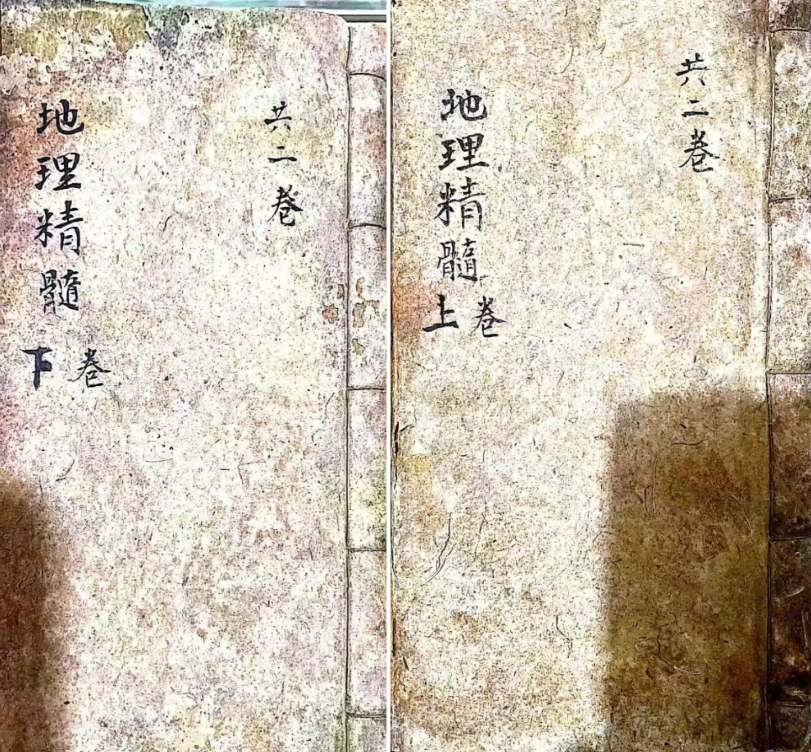 共二卷
地理精髓
下卷
共二卷
地理精髓
上卷